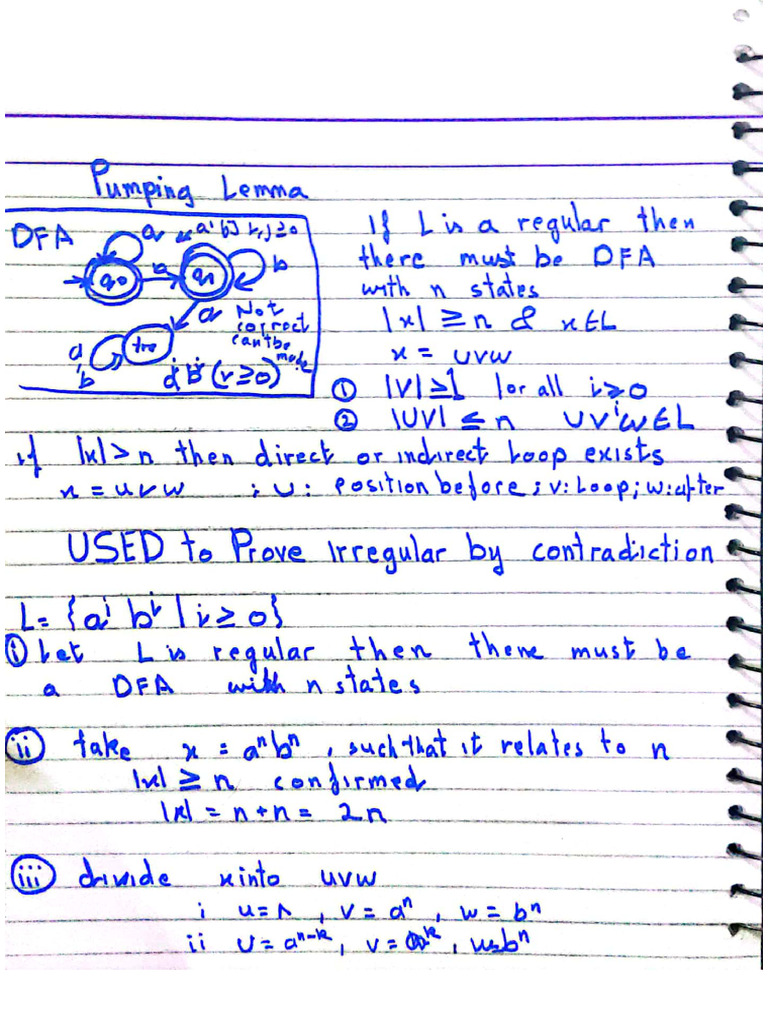 Pumping Lemma
DFA
a
a^i b^j i,j ≥ 0
q0
a
q1
b
a
Not correct can't be made
a
b
a^i b^i (i ≥ 0)
If L is a regular then
there must be DFA
with n states
|x| ≥ n & x ∈ L
x = uvw
① |V| ≥ 1 for all i ≥ 0
② |UV| ≤ n UV^iW ∈ L
if |x| > n then direct or indirect Loop exists
x = uvw ; U: Position before; v: Loop; w: after
USED to Prove Irregular by contradiction
L = {a^i b^i | i ≥ 0}
① Let L is regular then there must be
a DFA with n states
ii take x = a^n b^n, such that it relates to n
|x| ≥ n confirmed
|x| = n + n = 2n
iii divide x into uvw
i u = Λ, v = a^n, w = b^n
ii U = a^(n-k), v = a^k, w = b^n